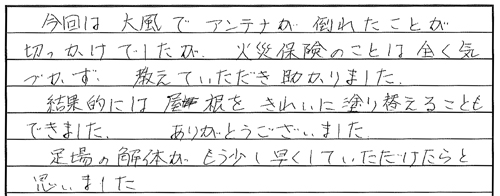 今回は 大風で アンテナが 倒れたことが
切っかけでしたが、火災保険のことは全く気
づかず、教えていただき助かりました。
結果的には 屋根を きれいに塗り替えることも
できました。 ありがとうございました。
足場の解体が もう少し早くしていただけたらと
思いました